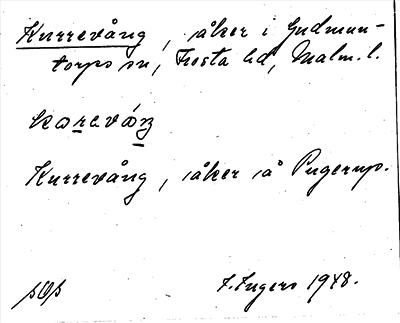 Kurrevång, åker i Gudmun-
torps sn, Frosta hd, Malm. l.
kɷreváŋ
Kurrevång, åker å Pugerup.
I. Ingers 1948.